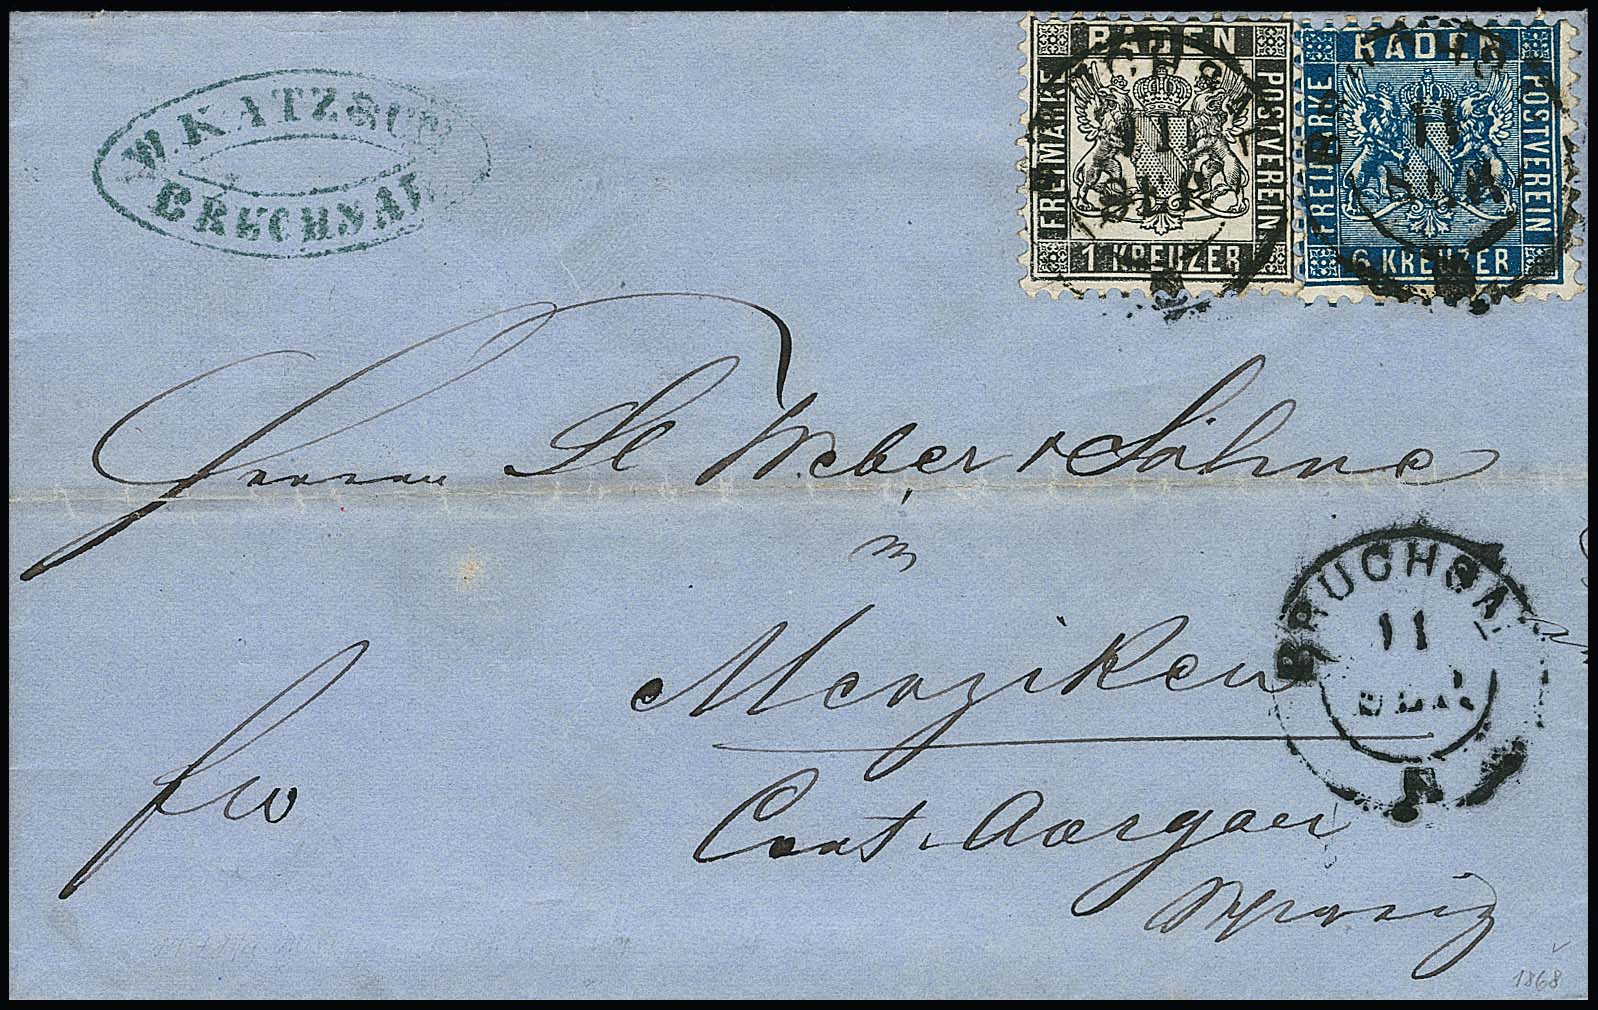 W. KATZ
BRUCHSAL
BADEN
FREIMARKE
POSTVEREIN
1 KREUZER
BADEN
FREIMARKE
POSTVEREIN
6 KREUZER
BRUCHSAL
11
SEP.
Herren Weber & Söhne
in
Menziken
Cant. Aargau
Schweiz
fco
BRUCHSAL
11
SEP.
1868